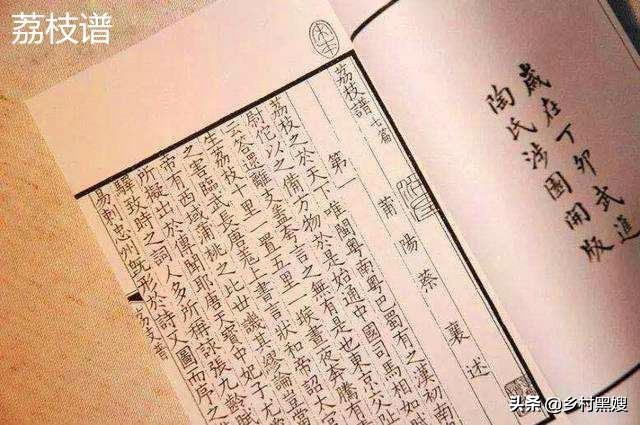 荔枝谱
歲在丁卯武進
陶氏涉園開版
荔枝譜 七篇
莆陽蔡襄述
第一
荔枝之於天下唯閩粵南粵巴蜀有之漢初南
尉佗以之備方物於是始通中國司馬相如
離支盖夸言之無有是也東京交趾
生荔枝十里一置五里一堠晝夜奔騰有
之害臨武長唐羌上書言狀和帝詔太官
帝有西域蒲桃之比世譏其繆論豈當
所擬出於傳聞耶唐天寶中妃子尤
驛致時之詞人多所稱詠張九齡賦
易刺忠州既形於詩又圖而序之
头条 @乡村黑嫂